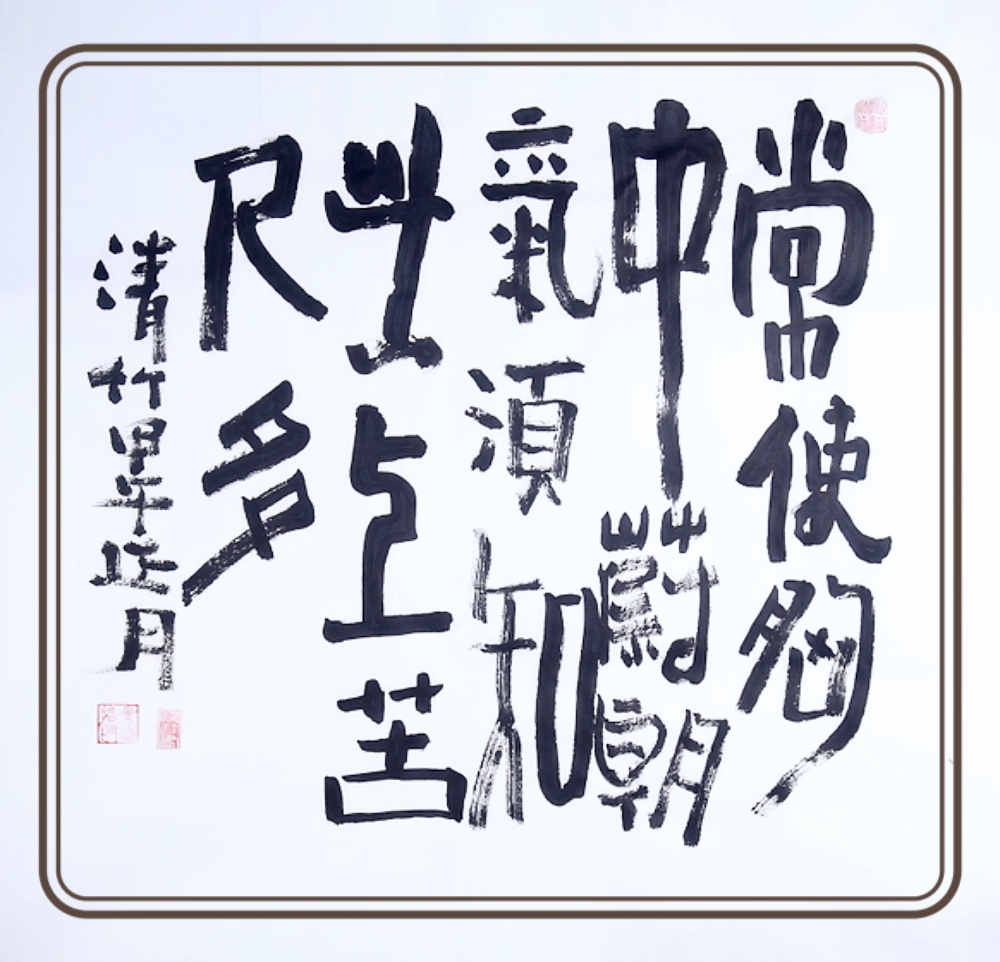 常使胸
中蔚朝
氣須知
世上苦
人多
清竹甲午正月